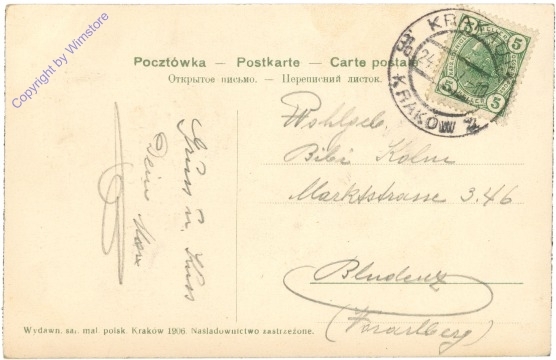 Copyright by Wimstore
Pocztówka — Postkarte — Carte postale
Открытое письмо. — Переписний листок.
KRAKÓW
KRAKÓW
5 5
5 5
Wohlgeb.
Bibi Kolm
Marktstrasse 3.46
Bludenz
(Vorarlberg)
Gruss u. Kuss
Deine
Wydawn. sal. mal. polsk. Kraków 1906. Naśladownictwo zastrzeżone.